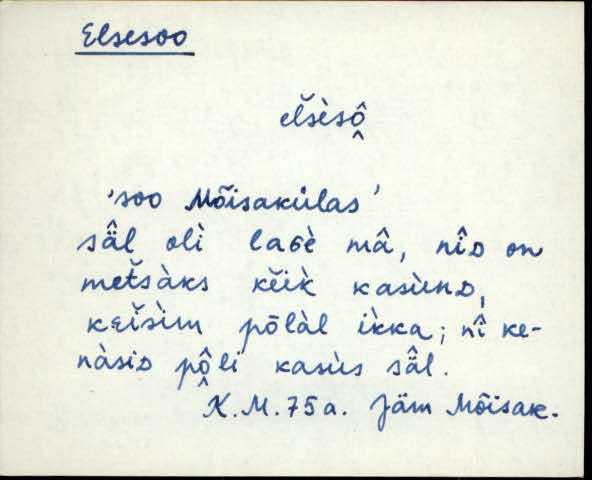 Elsesoo
el̆šèsô̭
'soo Mõisakülas'
sä̂l olì laʙè mâ, nîᴅ on
met̆sàks kĕik̀ kasùnᴅ,
kɛĭsìm pōlàl ìkka; nî ke-
nàsiᴅ pô̭li kasùs sä̂l.
K.M. 75 a. Jäm Mõisak.